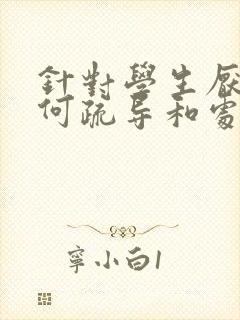 針對學生厭
何疏导和處
寧小白1